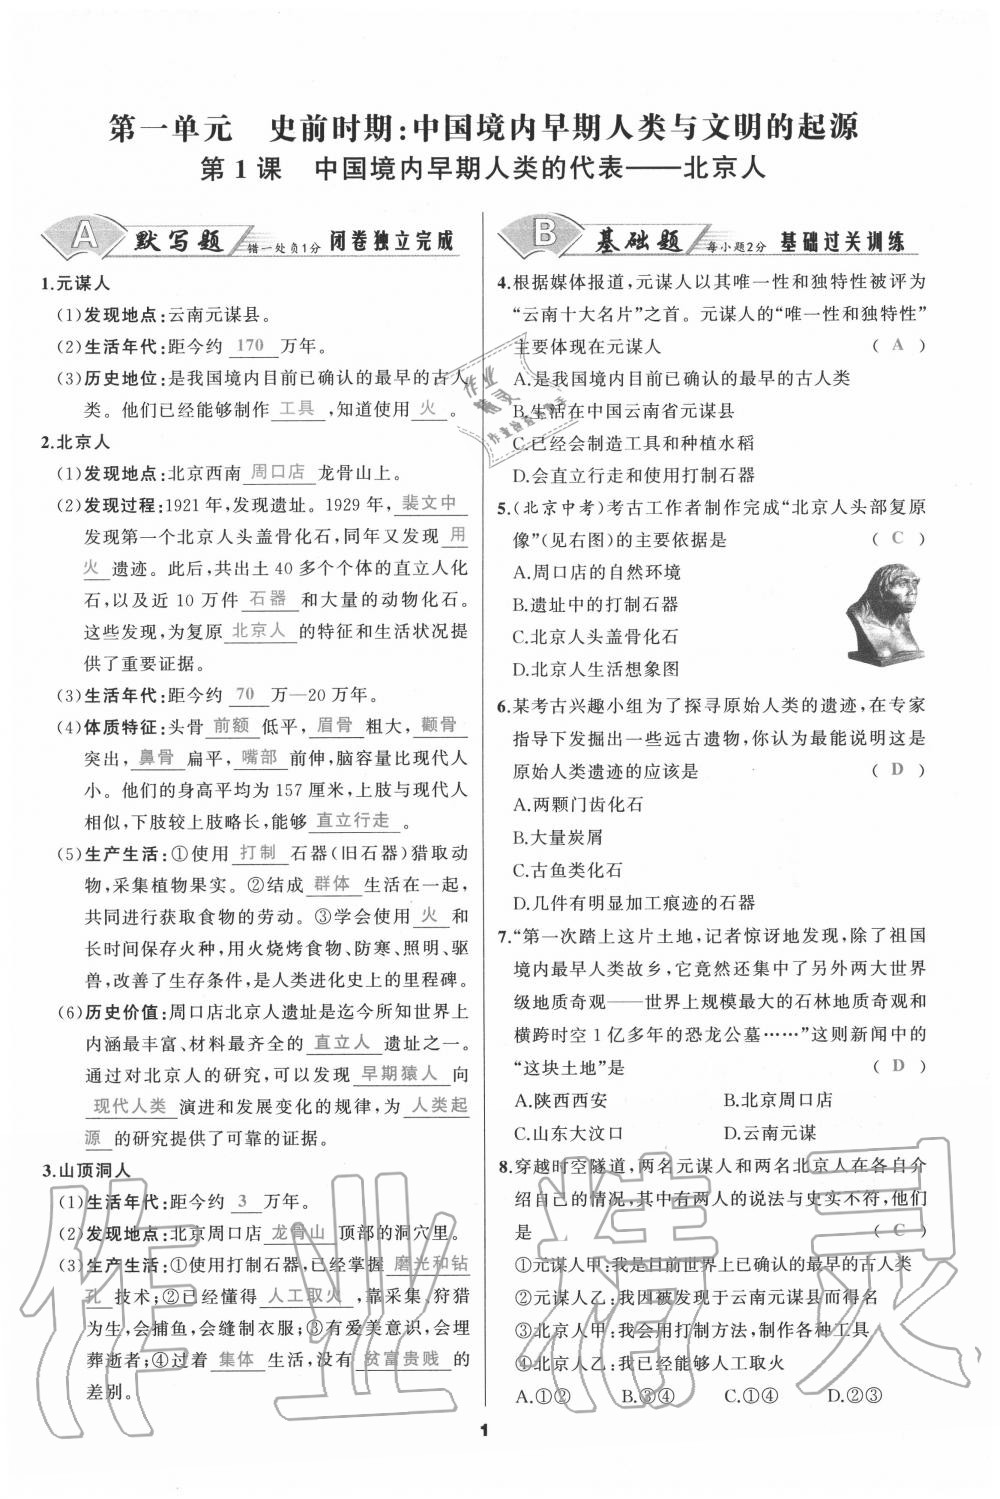 第一单元 史前时期:中国境内早期人类与文明的起源
第1课 中国境内早期人类的代表——北京人
A 默写题 错一处负1分 闭卷独立完成
1.元谋人
(1)发现地点:云南元谋县。
(2)生活年代:距今约 170 万年。
(3)历史地位:是我国境内目前已确认的最早的古人
类。他们已经能够制作 工具 ,知道使用 火 。
2.北京人
(1)发现地点:北京西南 周口店 龙骨山上。
(2)发现过程:1921年,发现遗址。1929年, 裴文中
发现第一个北京人头盖骨化石,同年又发现 用
火 遗迹。此后,共出土40多个个体的直立人化
石,以及近10万件 石器 和大量的动物化石。
这些发现,为复原 北京人 的特征和生活状况提
供了重要证据。
(3)生活年代:距今约 70 万—20万年。
(4)体质特征:头骨 前额 低平, 眉骨 粗大, 颧骨
突出, 鼻骨 扁平, 嘴部 前伸,脑容量比现代人
小。他们的身高平均为157厘米,上肢与现代人
相似,下肢较上肢略长,能够 直立行走 。
(5)生产生活:①使用 打制 石器(旧石器)猎取动
物,采集植物果实。②结成 群体 生活在一起,
共同进行获取食物的劳动。③学会使用 火 和
长时间保存火种,用火烧烤食物、防寒、照明、驱
兽,改善了生存条件,是人类进化史上的里程碑。
(6)历史价值:周口店北京人遗址是迄今所知世界上
内涵最丰富、材料最齐全的 直立人 遗址之一。
通过对北京人的研究,可以发现 早期猿人 向
现代人类 演进和发展变化的规律,为 人类起
源 的研究提供了可靠的证据。
3.山顶洞人
(1)生活年代:距今约 3 万年。
(2)发现地点:北京周口店 龙骨山 顶部的洞穴里。
(3)生产生活:①使用打制石器,已经掌握 磨光和钻
孔 技术;②已经懂得 人工取火 ,靠采集、狩猎
为生,会捕鱼,会缝制衣服;③有爱美意识,会埋
葬逝者;④过着 集体 生活,没有 贫富贵贱 的
差别。
B 基础题 每小题2分 基础过关训练
4.根据媒体报道,元谋人以其唯一性和独特性被评为
“云南十大名片”之首。元谋人的“唯一性和独特性”
主要体现在元谋人 ( A )
A.是我国境内目前已确认的最早的古人类
B.生活在中国云南省元谋县
C.已经会制造工具和种植水稻
D.会直立行走和使用打制石器
5.(北京中考)考古工作者制作完成“北京人头部复原
像”(见右图)的主要依据是 ( C )
A.周口店的自然环境
B.遗址中的打制石器
C.北京人头盖骨化石
D.北京人生活想象图
6.某考古兴趣小组为了探寻原始人类的遗迹,在专家
指导下发掘出一些远古遗物,你认为最能说明这是
原始人类遗迹的应该是 ( D )
A.两颗门齿化石
B.大量炭屑
C.古鱼类化石
D.几件有明显加工痕迹的石器
7.“第一次踏上这片土地,记者惊讶地发现,除了祖国
境内最早人类故乡,它竟然还集中了另外两大世界
级地质奇观——世界上规模最大的石林地质奇观和
横跨时空1亿多年的恐龙公墓……”这则新闻中的
“这块土地”是 ( D )
A.陕西西安 B.北京周口店
C.山东大汶口 D.云南元谋
8.穿越时空隧道,两名元谋人和两名北京人在各自介
绍自己的情况,其中有两人的说法与史实不符,他们
是 ( C )
①元谋人甲:我是目前世界上已确认的最早的古人类
②元谋人乙:我因被发现于云南元谋县而得名
③北京人甲:我会用打制方法,制作各种工具
④北京人乙:我已经能够人工取火
A.①② B.③④ C.①④ D.②③
1
作业精灵